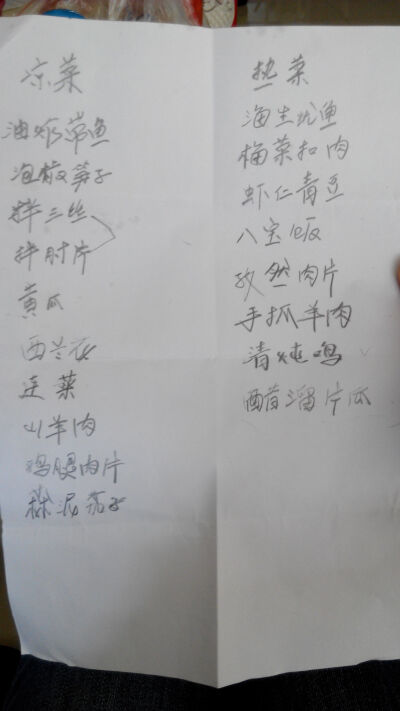 凉菜
油炸带鱼
泡椒笋子
拌三丝
拌肘片
黄瓜
西兰花
连菜
山羊肉
鸡腿肉片
蒜泥茄子
热菜
海生鱿鱼
梅菜扣肉
虾仁青豆
八宝饭
孜然肉片
手抓羊肉
清炖鸡
醋溜片瓜